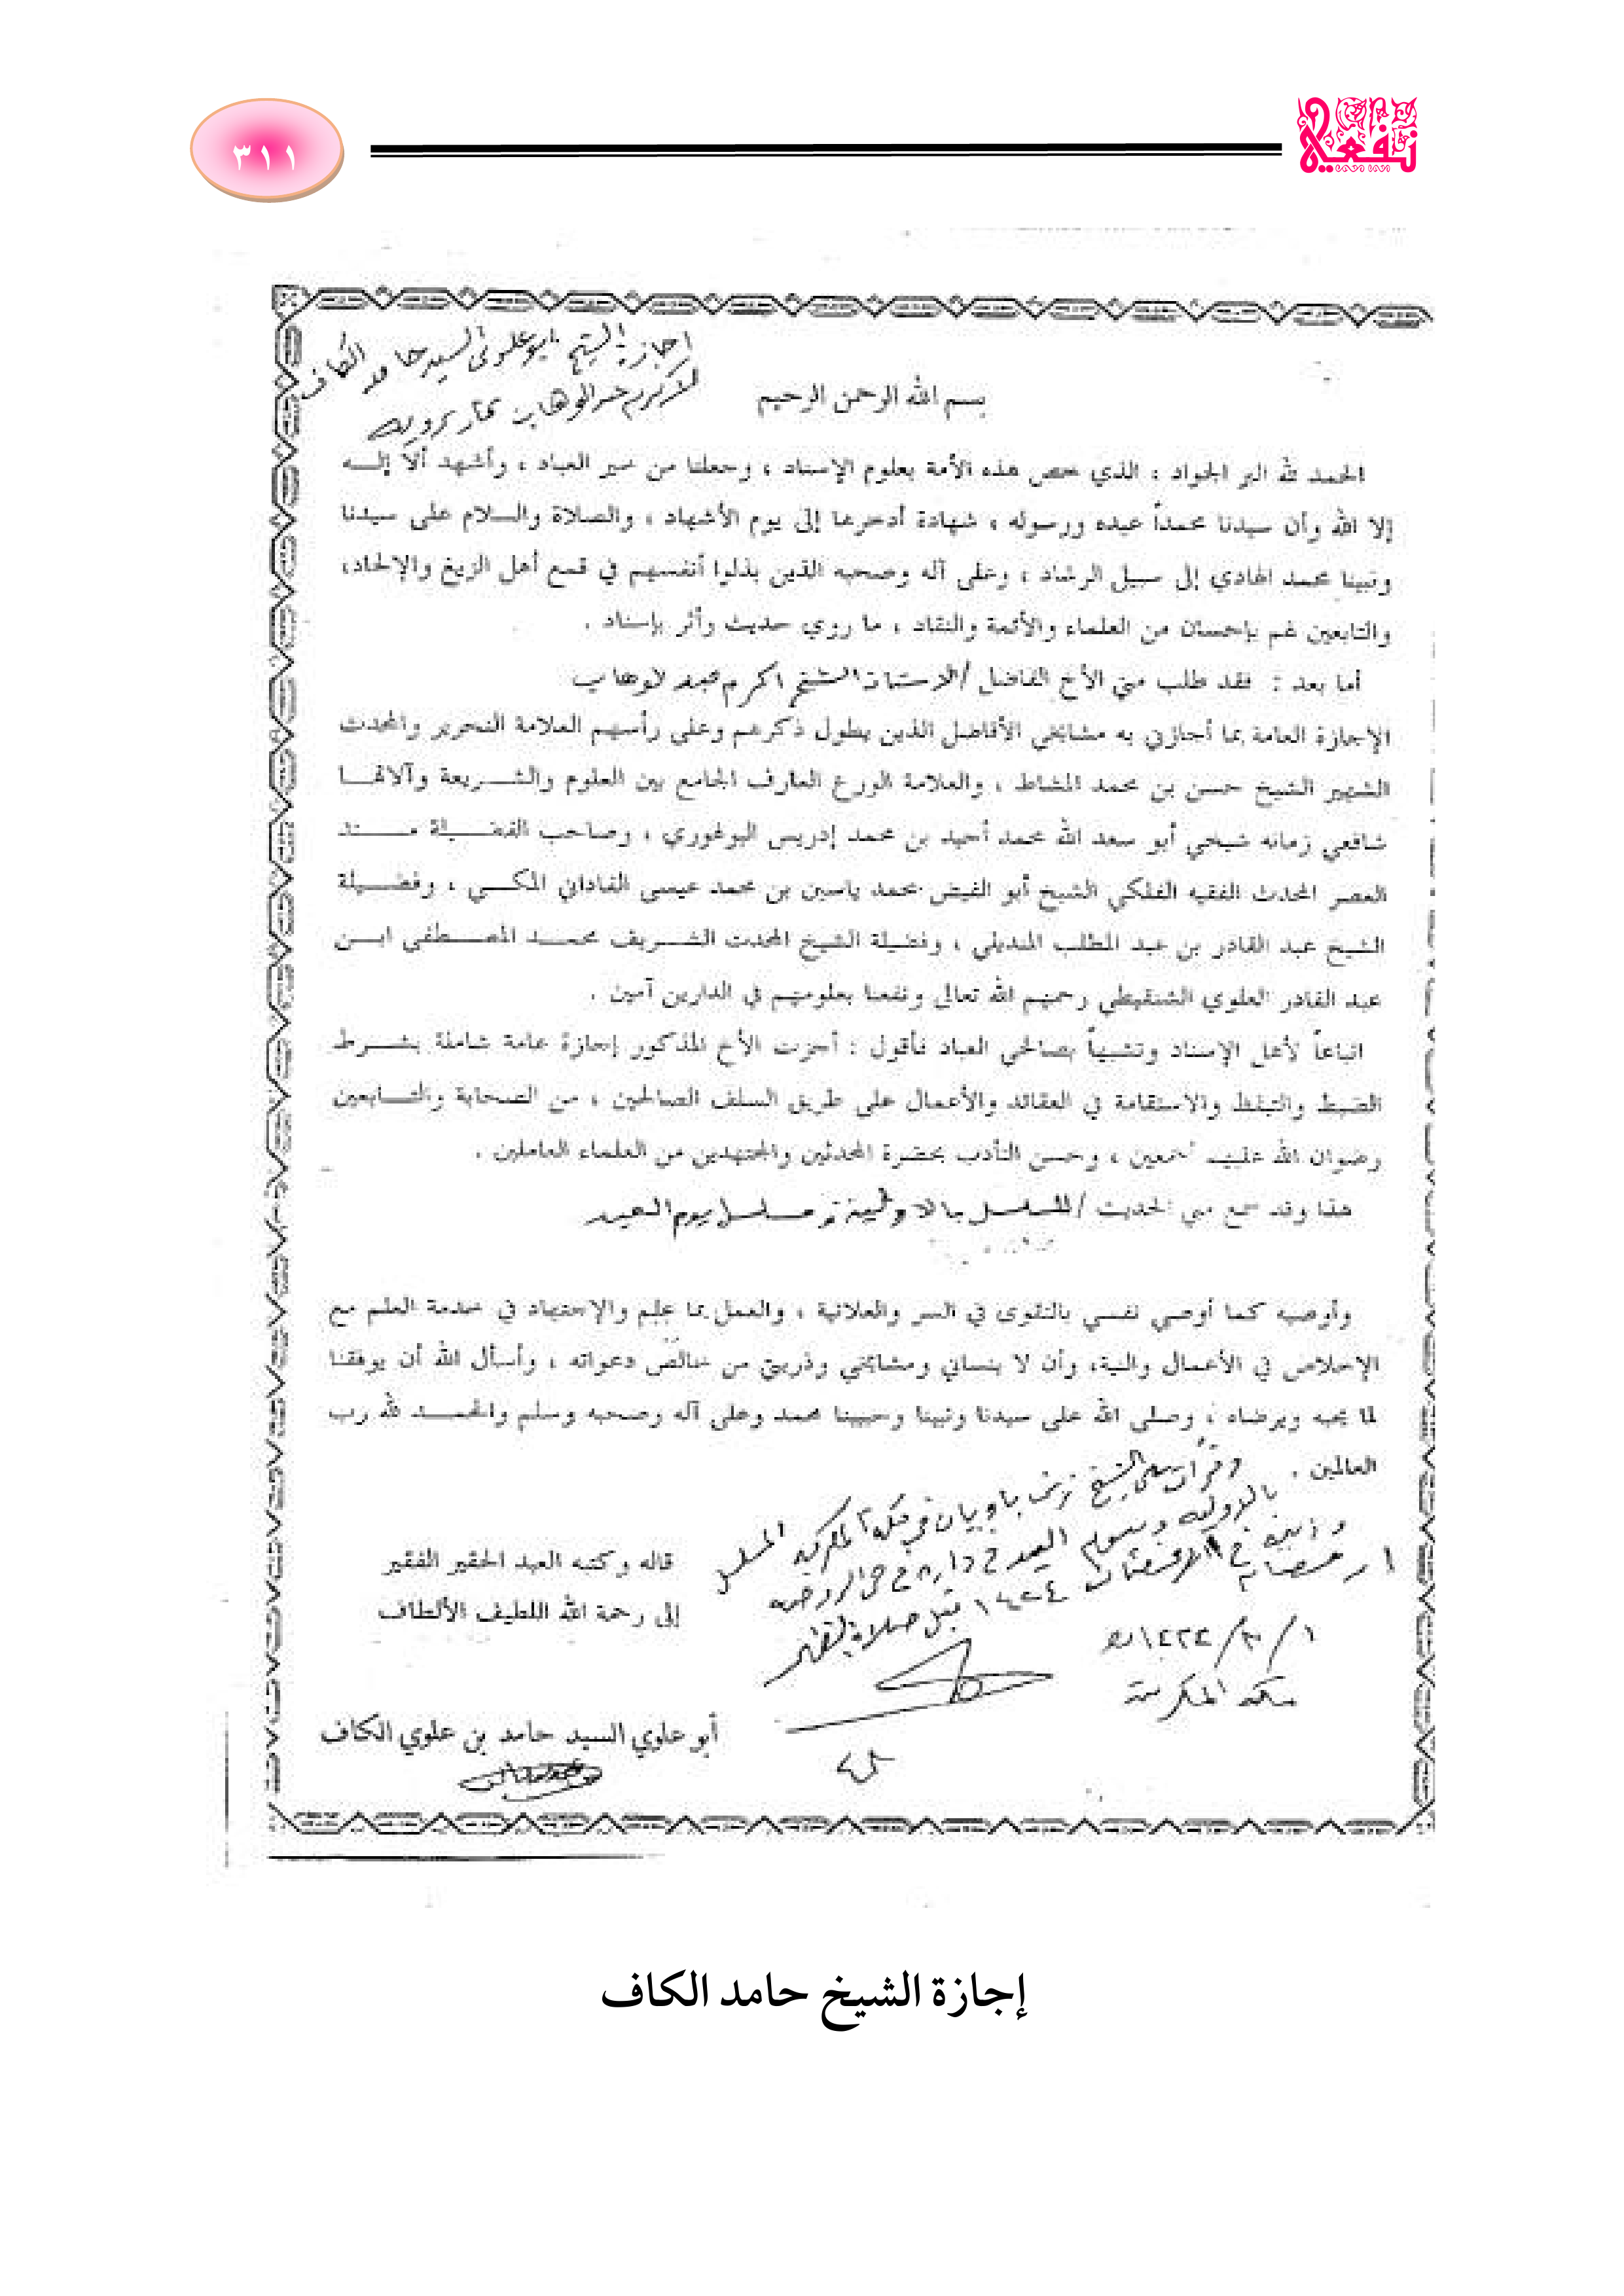 نفعية
٣١١
إجازة الشيخ أبو علوي السيد حامد الكاف
لأكرم عبد الوهاب
بسم الله الرحمن الرحيم
الحمد لله البر الجواد ، الذي خص هذه الأمة بعلوم الإسناد ، وجعلنا من خير العباد ، وأشهد ألا إلــه
إلا الله وأن سيدنا محمداً عبده ورسوله ، شهادة أدخرها إلى يوم الأشهاد ، والصلاة والسلام على سيدنا
ونبينا محمد الهادي إلى سبيل الرشاد ، وعلى آله وصحبه الذين بذلوا أنفسهم في قمع أهل الزيغ والإلحاد،
والتابعين لهم بإحسان من العلماء والأئمة والنقاد ، ما روي حديث وأثر بإسناد .
أما بعد : فقد طلب مني الأخ الفاضل / الاستاذ الشيخ اكرم عبد الوهاب
الإجازة العامة بما أجازني به مشائخي الأفاضل الذين يطول ذكرهم وعلى رأسهم العلامة النحرير والمحدث
الشهير الشيخ حسن بن محمد المشاط ، والعلامة الورع العارف الجامع بين العلوم والشــريعة وآلاتهــا
شافعي زمانه شيخي أبو سعد الله محمد أحيد بن محمد إدريس البوغوري ، وصاحب الفضيلة مسند
العصر المحدث الفقيه الفلكي الشيخ أبو الفيض محمد ياسين بن محمد عيسى الفاداني المكــي ، وفضــيلة
الشيخ عبد القادر بن عبد المطلب المنديلي ، وفضيلة الشيخ المحدث الشــريف محمــد المصــطفى ابــن
عبد القادر العلوي الشنقيطي رحمهم الله تعالى ونفعنا بعلومهم في الدارين آمين .
اتباعاً لأهل الإسناد وتشبهاً بصالحي العباد فأقول : أجزت الأخ المذكور إجازة عامة شاملة بشــرط
الضبط والتيقظ والاستقامة في العقائد والأعمال على طريق السلف الصالحين ، من الصحابة والتــابعين
رضوان الله عليهم أجمعين ، وحسن التأدب بحضرة المحدثين والمجتهدين من العلماء العاملين .
هذا وقد سمع مني الحديث / المسلسل بالاولية و مسلسل يوم العيد
وأوصيه كما أوصي نفسي بالتقوى في السر والعلانية ، والعمل بما علم والإجتهاد في خدمة العلم مع
الإخلاص في الأعمال والنية، وأن لا ينساني ومشائخي وذريتي من خالص دعواته ، وأسأل الله أن يوفقنا
لما يحبه ويرضاه ، وصلى الله على سيدنا ونبينا وحبيبنا محمد وعلى آله وصحبه وسلم والحمــد لله رب
العالمين .
مكة المكرمة المسلسل
بالاولية ويوم العيد في داره في حي الروضة
١٤٢٤ قبل صلاة الظهر
مكة المكرمة
قاله وكتبه العبد الحقير الفقير
إلى رحمة الله اللطيف الألطاف
أبو علوي السيد حامد بن علوي الكاف
إجازة الشيخ حامد الكاف